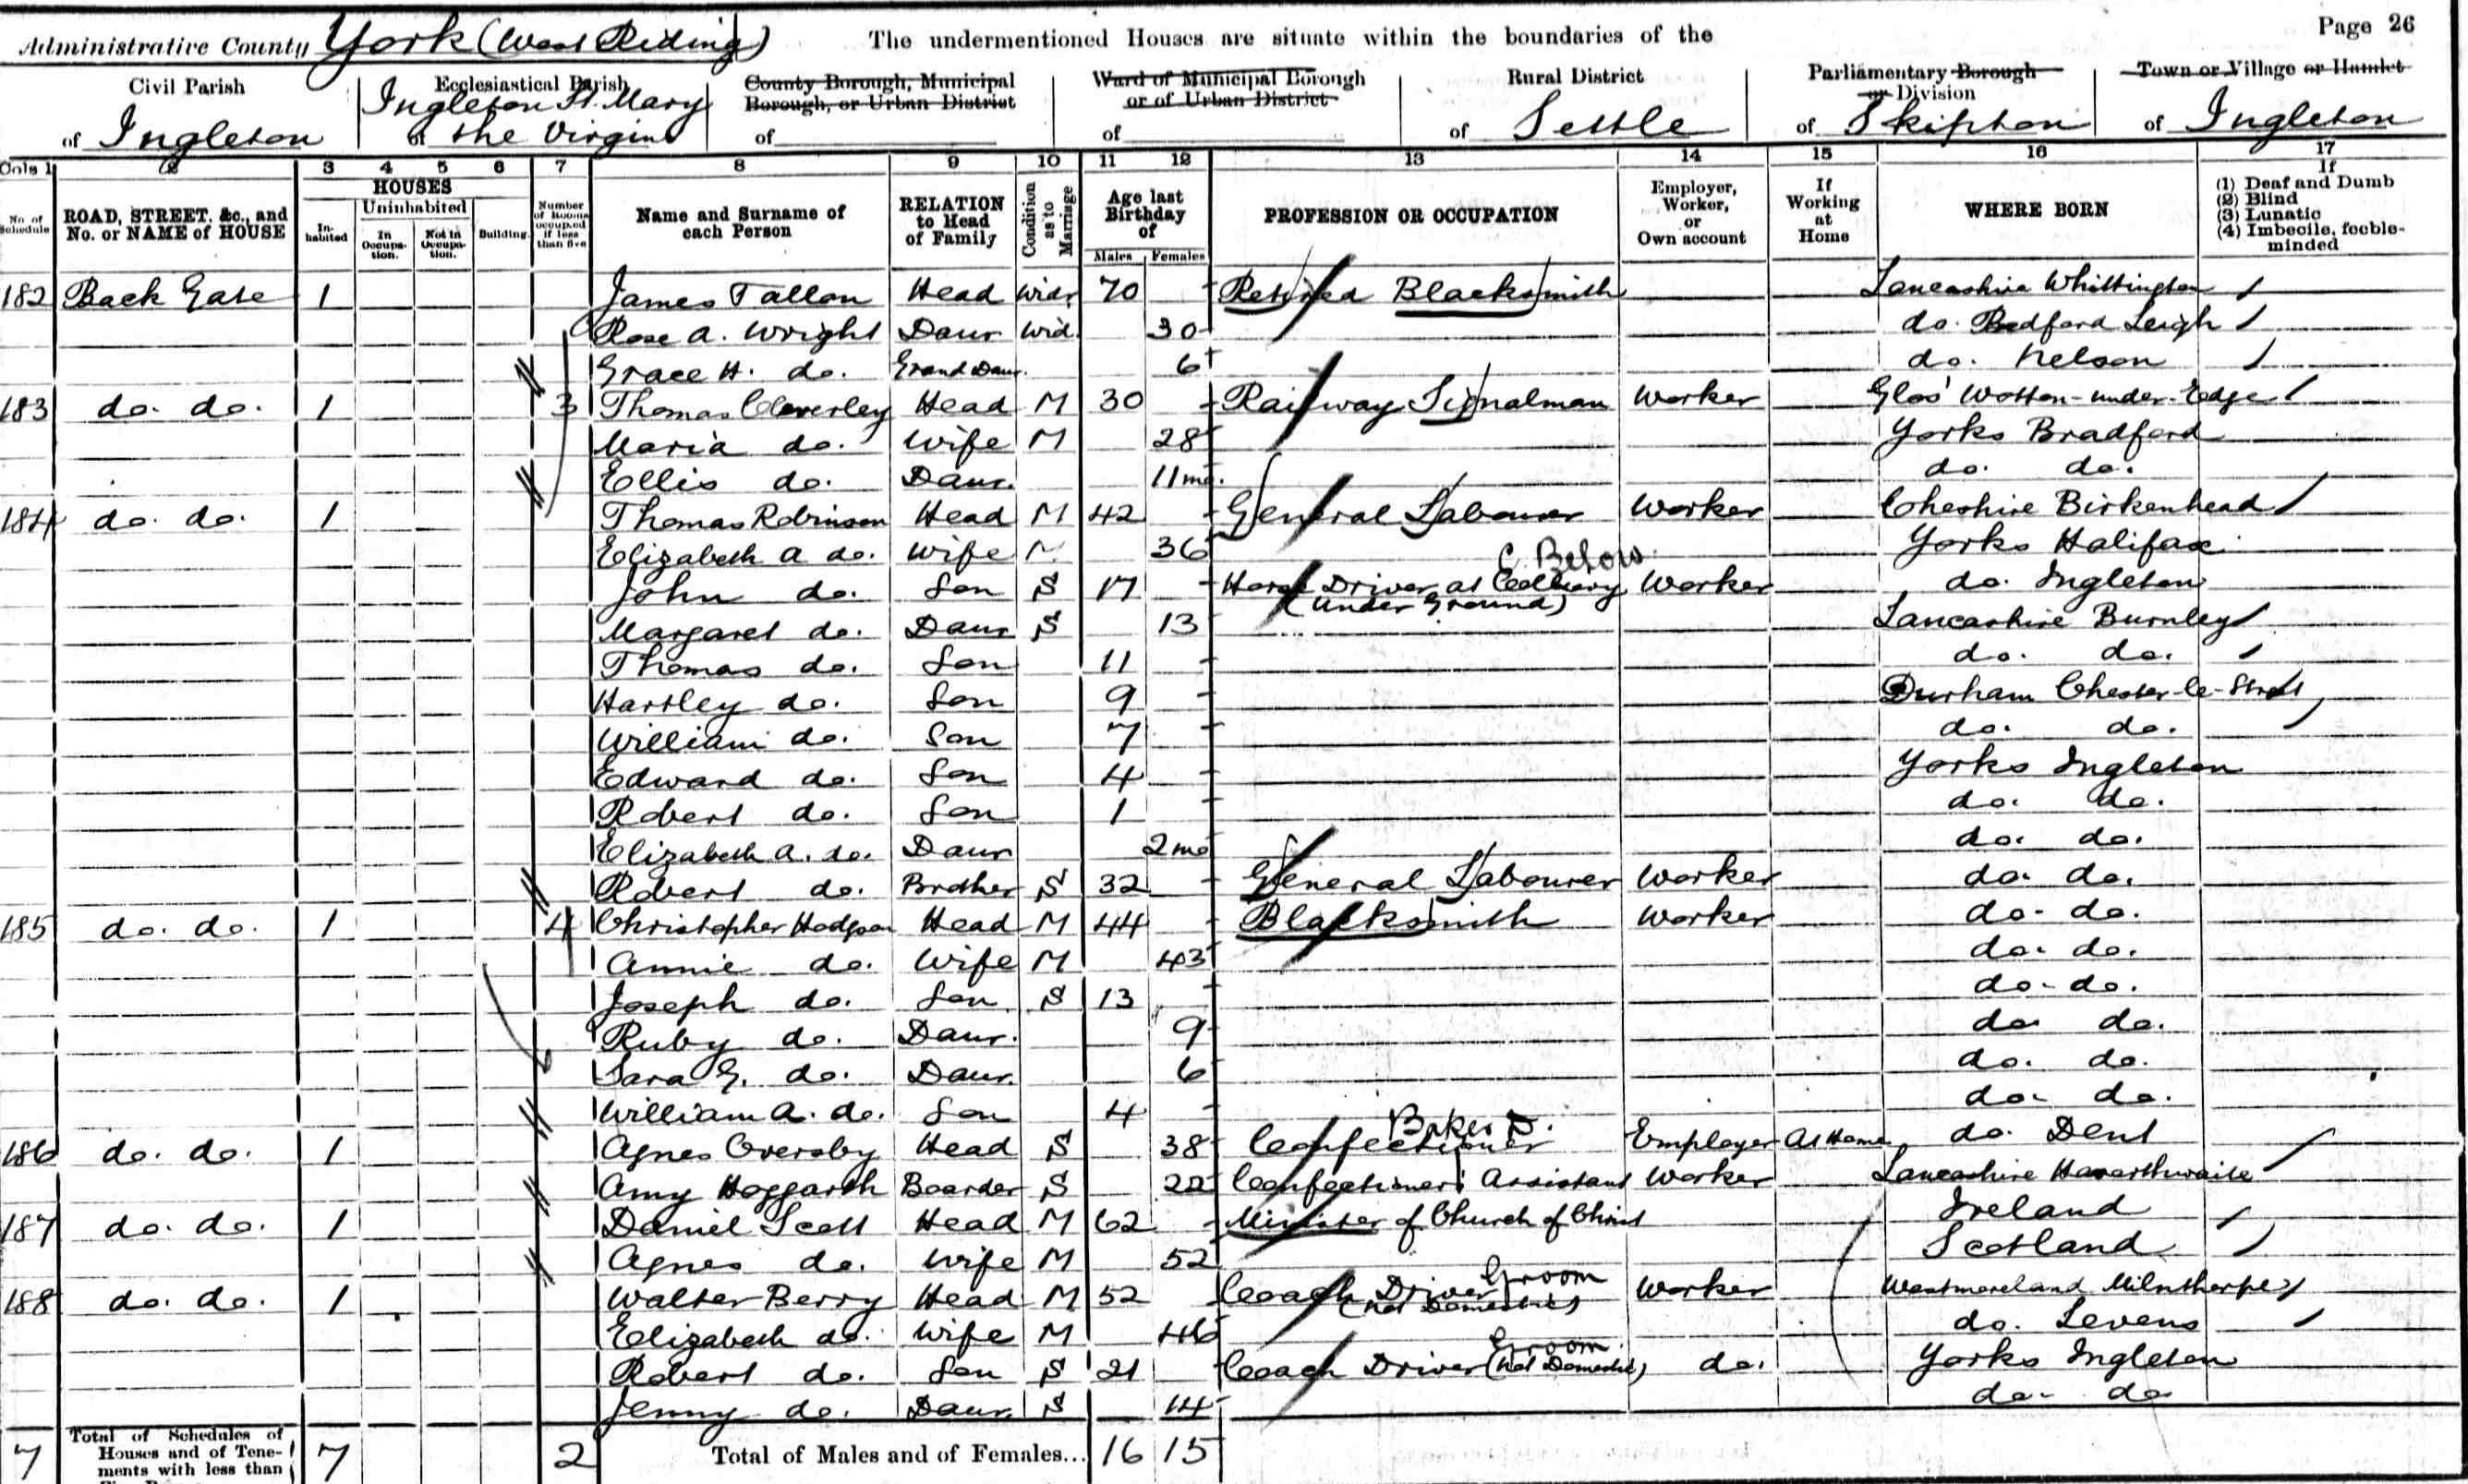 Page 26
Administrative County York (West Riding) The undermentioned Houses are situate within the boundaries of the
Civil Parish of Ingleton
Ecclesiastical Parish of Ingleton St. Mary the Virgin
County Borough, Municipal Borough, or Urban District of
Ward of Municipal Borough or of Urban District of
Rural District of Settle
Parliamentary Borough or Division of Skipton
Town or Village or Hamlet of Ingleton
Cols 1 2 3 4 5 6 7 8 9 10 11 12 13 14 15 16 17
No. of Schedule
ROAD, STREET, &c., and No. or NAME of HOUSE
HOUSES
Inhabited
Uninhabited
In Occupation.
Not in Occupation.
Building.
Number of Rooms occupied if less than five
Name and Surname of each Person
RELATION to Head of Family
Condition as to Marriage
Age last Birthday of
Males Females
PROFESSION OR OCCUPATION
Employer, Worker, or Own account
If Working at Home
WHERE BORN
If
(1) Deaf and Dumb
(2) Blind
(3) Lunatic
(4) Imbecile, feeble-minded
182 Back Gate 1 James Tallon Head Widr 70 Retired Blacksmith Lancashire Whittington
Rose A. Wright Daur Wid. 30 do. Bedford Leigh
Grace H. do. Grand Daur. 6 do. Nelson
183 do. do. 1 3 Thomas Cleverley Head M 30 Railway Signalman Worker Glos' Wotton-under-Edge
Maria do. Wife M 28 Yorks Bradford
Ellis do. Daur. 11 mo. do. do.
184 do. do. 1 Thomas Robinson Head M 42 General Labourer Worker Cheshire Birkenhead
Elizabeth A do. Wife M 36 Yorks Halifax
John do. Son S 17 Horse Driver at Colliery (Under Ground) Below Worker do. Ingleton
Margaret do. Daur S 13 Lancashire Burnley
Thomas do. Son 11 do. do.
Hartley do. Son 9 Durham Chester-le-Street
William do. Son 7 do. do.
Edward do. Son 4 Yorks Ingleton
Robert do. Son 1 do. do.
Elizabeth A. do. Daur 2 mo do. do.
Robert do. Brother S 32 General Labourer Worker do. do.
185 do. do. 1 4 Christopher Hodgson Head M 44 Blacksmith Worker do. do.
Annie do. Wife M 43 do. do.
Joseph do. Son S 13 do. do.
Ruby do. Daur. 9 do. do.
Sara G. do. Daur. 6 do. do.
William A. do. Son 4 do. do.
186 do. do. 1 Agnes Oversby Head S 38 Confectioner Baker D. Employer At Home do. Dent
Amy Hoggarth Boarder S 22 Confectioners Assistant Worker Lancashire Haverthwaite
187 do. do. 1 Daniel Scott Head M 62 Minister of Church of Christ Ireland
Agnes do. Wife M 52 Scotland
188 do. do. 1 Walter Berry Head M 52 Coach Driver Groom (not Domestic) Worker Westmoreland Milnthorpe
Elizabeth do. Wife M 46 do. Levens
Robert do. Son S 21 Coach Driver Groom (not Domestic) do. Yorks Ingleton
Jenny do. Daur. S 14 do. do
7 Total of Schedules of Houses and of Tenements with less than 7 2 Total of Males and of Females... 16 15